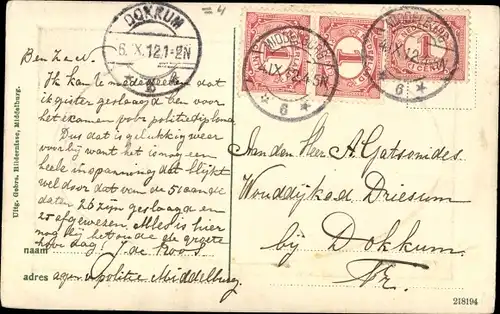 DOKKUM
6.IX.12.1-2N
=4
MIDDELBURG
4.IX.12.4-5N
6
MIDDELBURG
6
1
NEDERLAND
1
Ik kan U mededeelen dat
ik gister geslaagd ben voor
het examen voor politie diploma
Dus dat is gelukkig weer
voorbij want het is nog een
heele inspanning dat blijkt
wel door dat van de 51 candi
daten 26 zijn geslaagd en
25 afgewezen. Alles is hier
nog bij het oude de groete
hoor dag! J. de Roos
naam
adres agent v politie Middelburg
Uitg. Gebrs. Bildernisse, Middelburg.
Aan den Heer A. Gatsonides
Wouddijk ad Driesum
bij Dokkum.
Fr.
218194